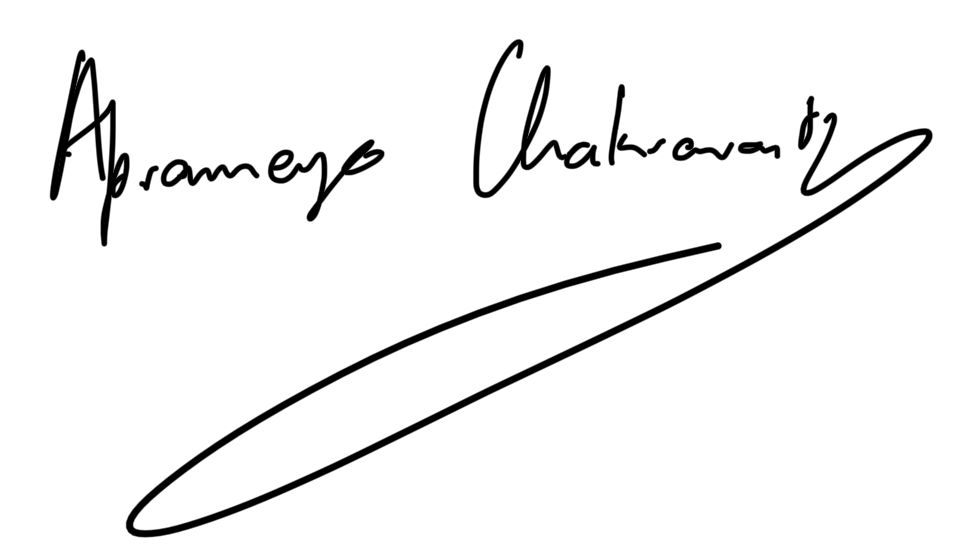 Aprameyo Chakravarty